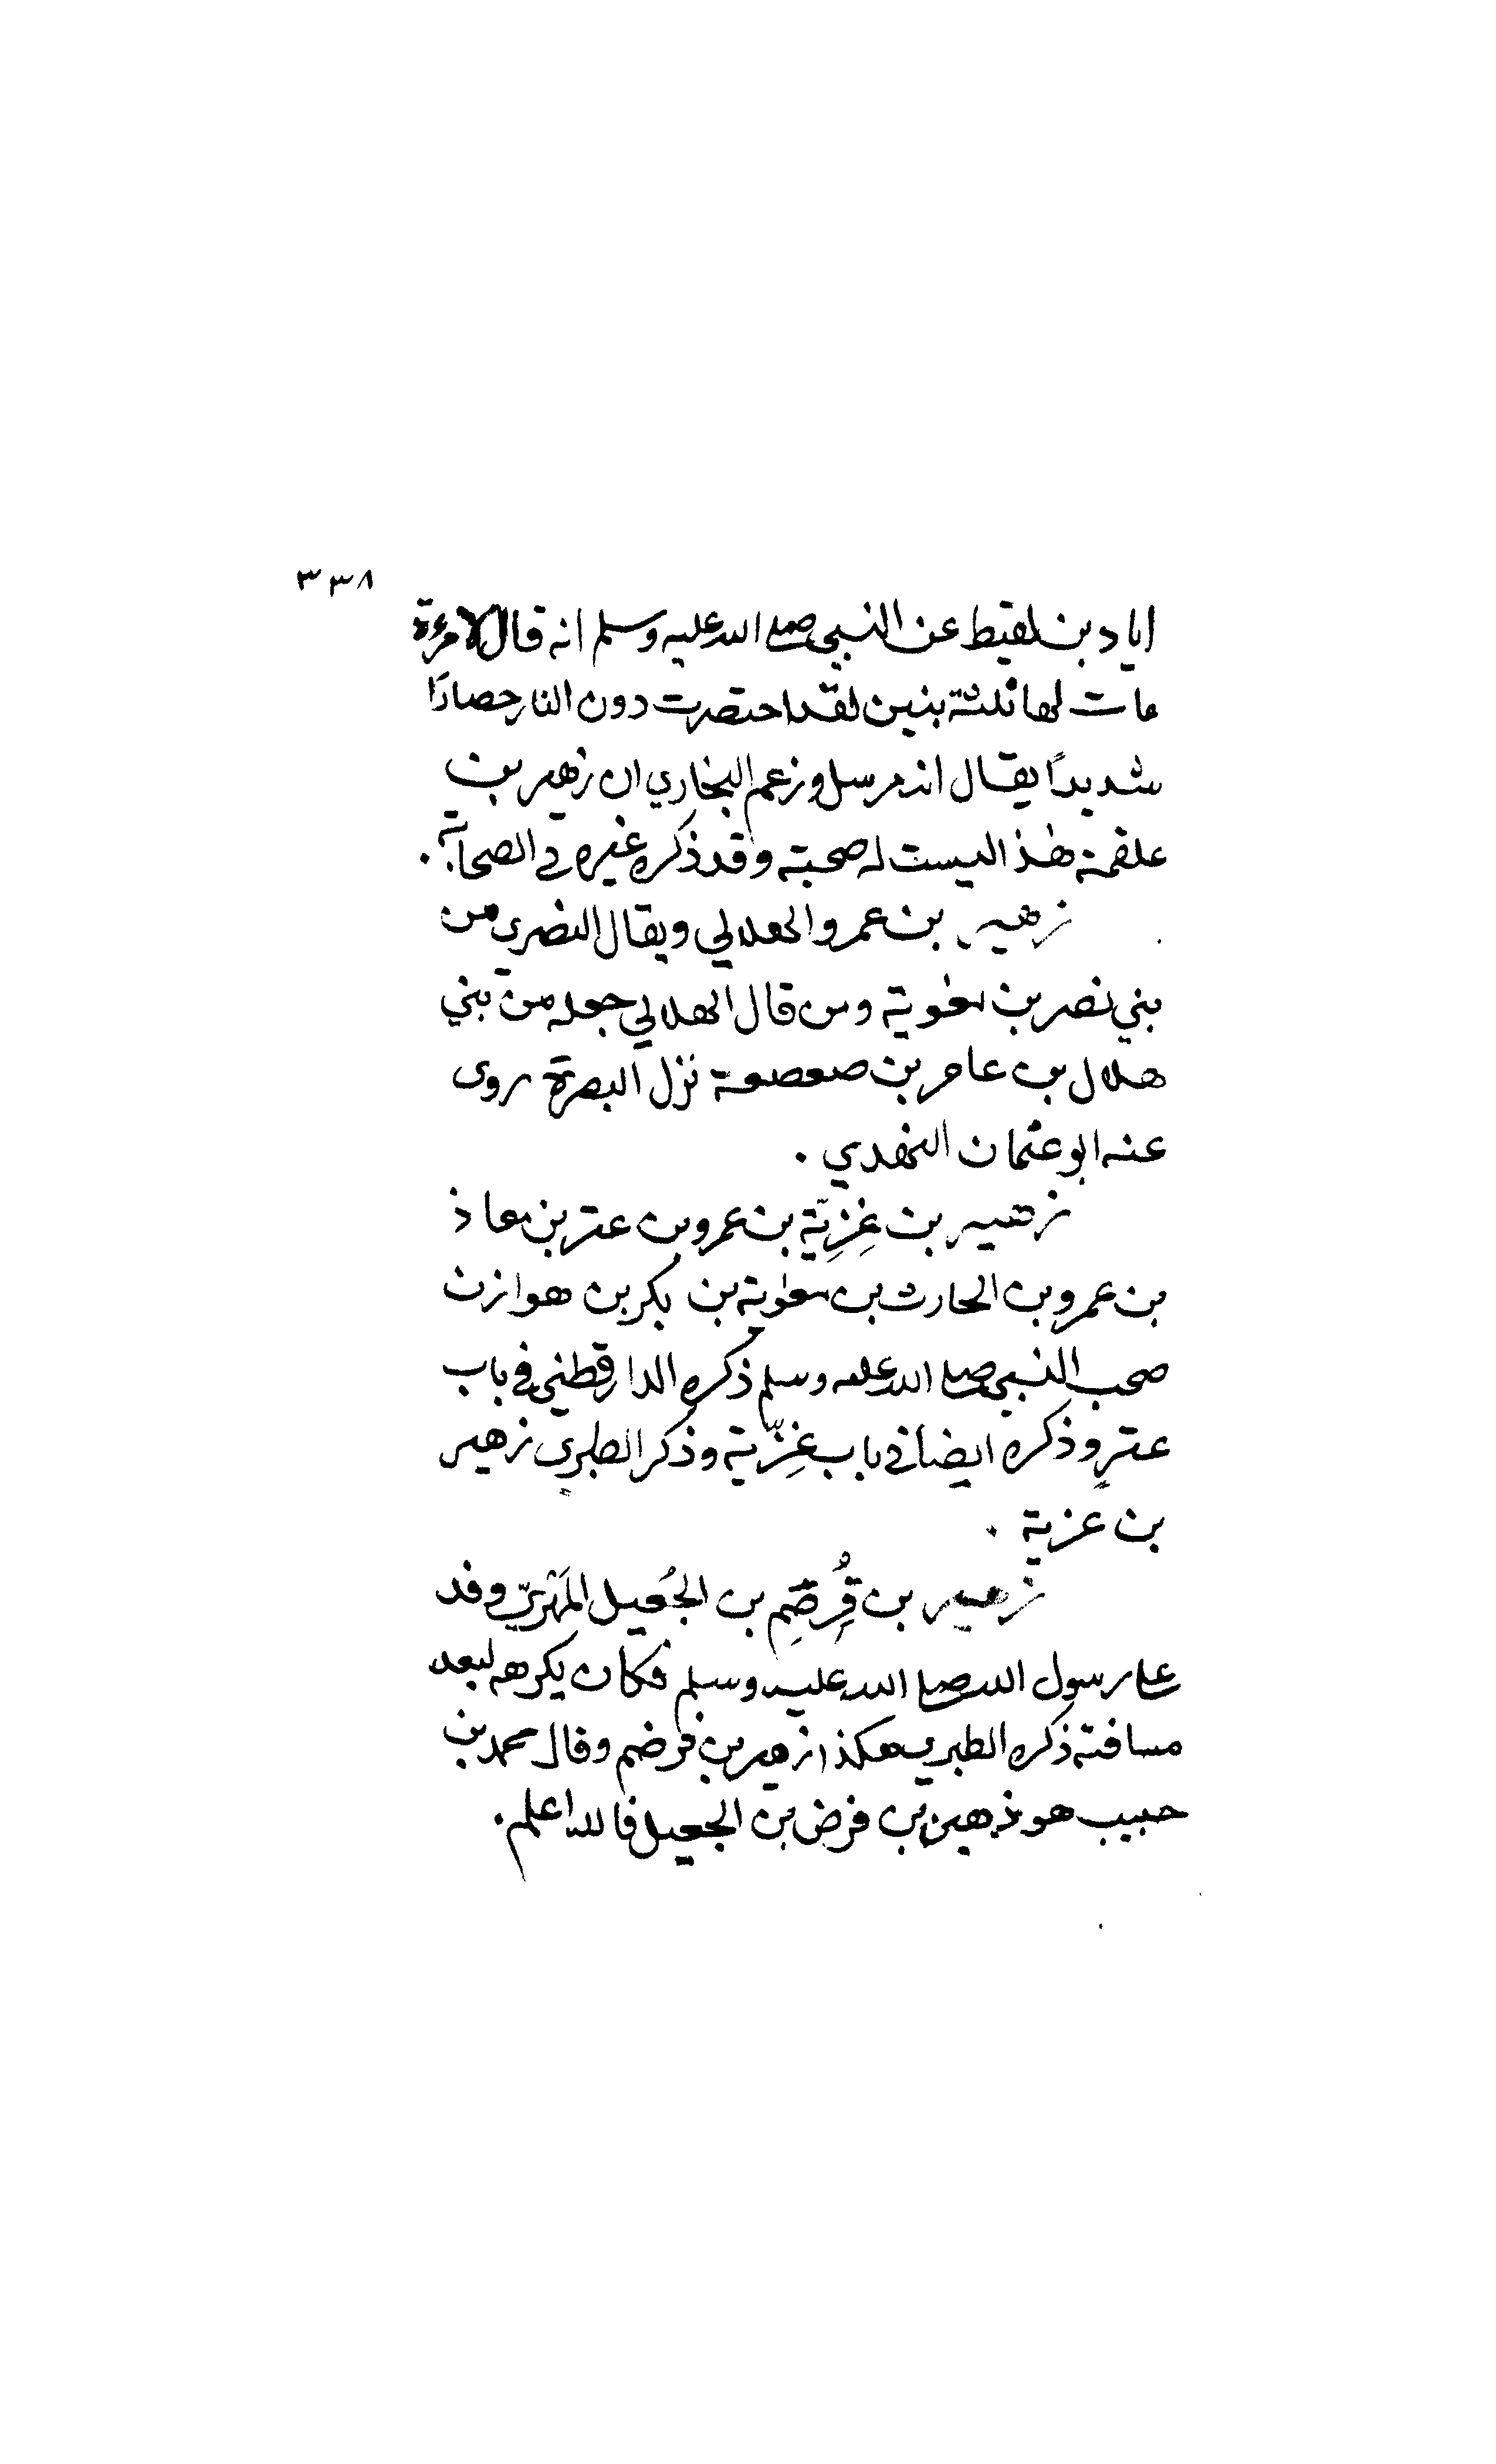 ٣٣٨
اياد بن لقيط عن النبي صلى الله عليه وسلم انه قال لامرءة
مات لها ثلثة بنين لقد احتصرت دون النار حصارًا
شديدًا يقال انه مرسل وزعم البخاري ان زهير بن
علقمة هٰذا ليست له صحبة وقد ذكره غيره في الصحابة .
زهير بن عمرو الهلالي ويقال النصري من
بني نصر بن معٰوية ومن قال الهلالي جعله من بني
هلال بن عامر بن صعصعة نزل البصرة روى
عنه ابو عثمان النهدي .
زهير بن غِزِيّة بن عمرو بن عتر بن معاذ
بن عمرو بن الحارث بن معٰوية بن بكر بن هوازن
صحب النبي صلى الله عليه وسلم ذكره الدارقطني في باب
عتر وذكره ايضا في باب غِزّية وذكر الطبري زهير
بن عزية .
زهير بن قُرِضِم بن الجُعيل المَهْرِيّ وفد
على رسول الله صلى الله عليه وسلم فكان يكرمه لبعد
مسافته ذكره الطبري هكذا زهير بن قرضم وقال محمد بن
حبيب هو ذهبن بن قرض بن الجعيل فالله اعلم .